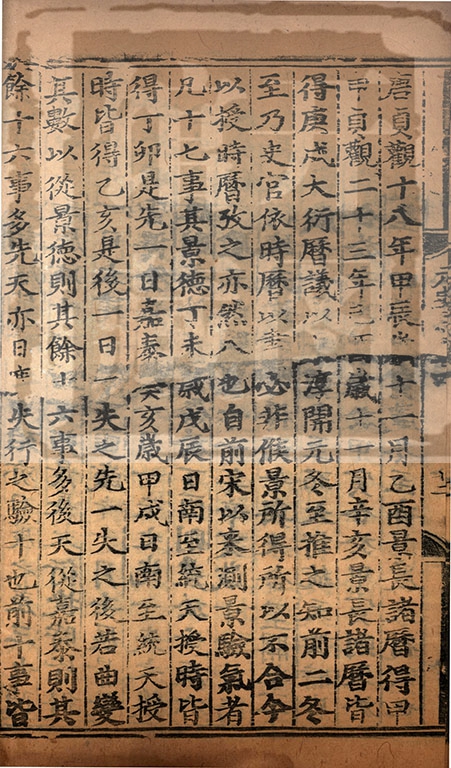 唐貞觀十八年甲辰歲十一月乙酉景長諸曆得甲
申貞觀二十三年己歲十一月辛亥景長諸曆皆
得庚戌大衍曆議以淳開元冬至推之知前二冬
至乃史官依時曆以書必非候景所得所以不合今
以授時曆攷之亦然八也自前宋以來測景驗氣者
凡十七事其景德丁未歲戊辰日南至統天授時皆
得丁卯是先一日嘉泰癸亥歲甲戌日南至統天授
時皆得乙亥是後一日一失之先一失之後若曲變
其數以從景德則其餘十六事多後天從嘉泰則其
餘十六事多先天亦日度失行之驗十也前十事皆